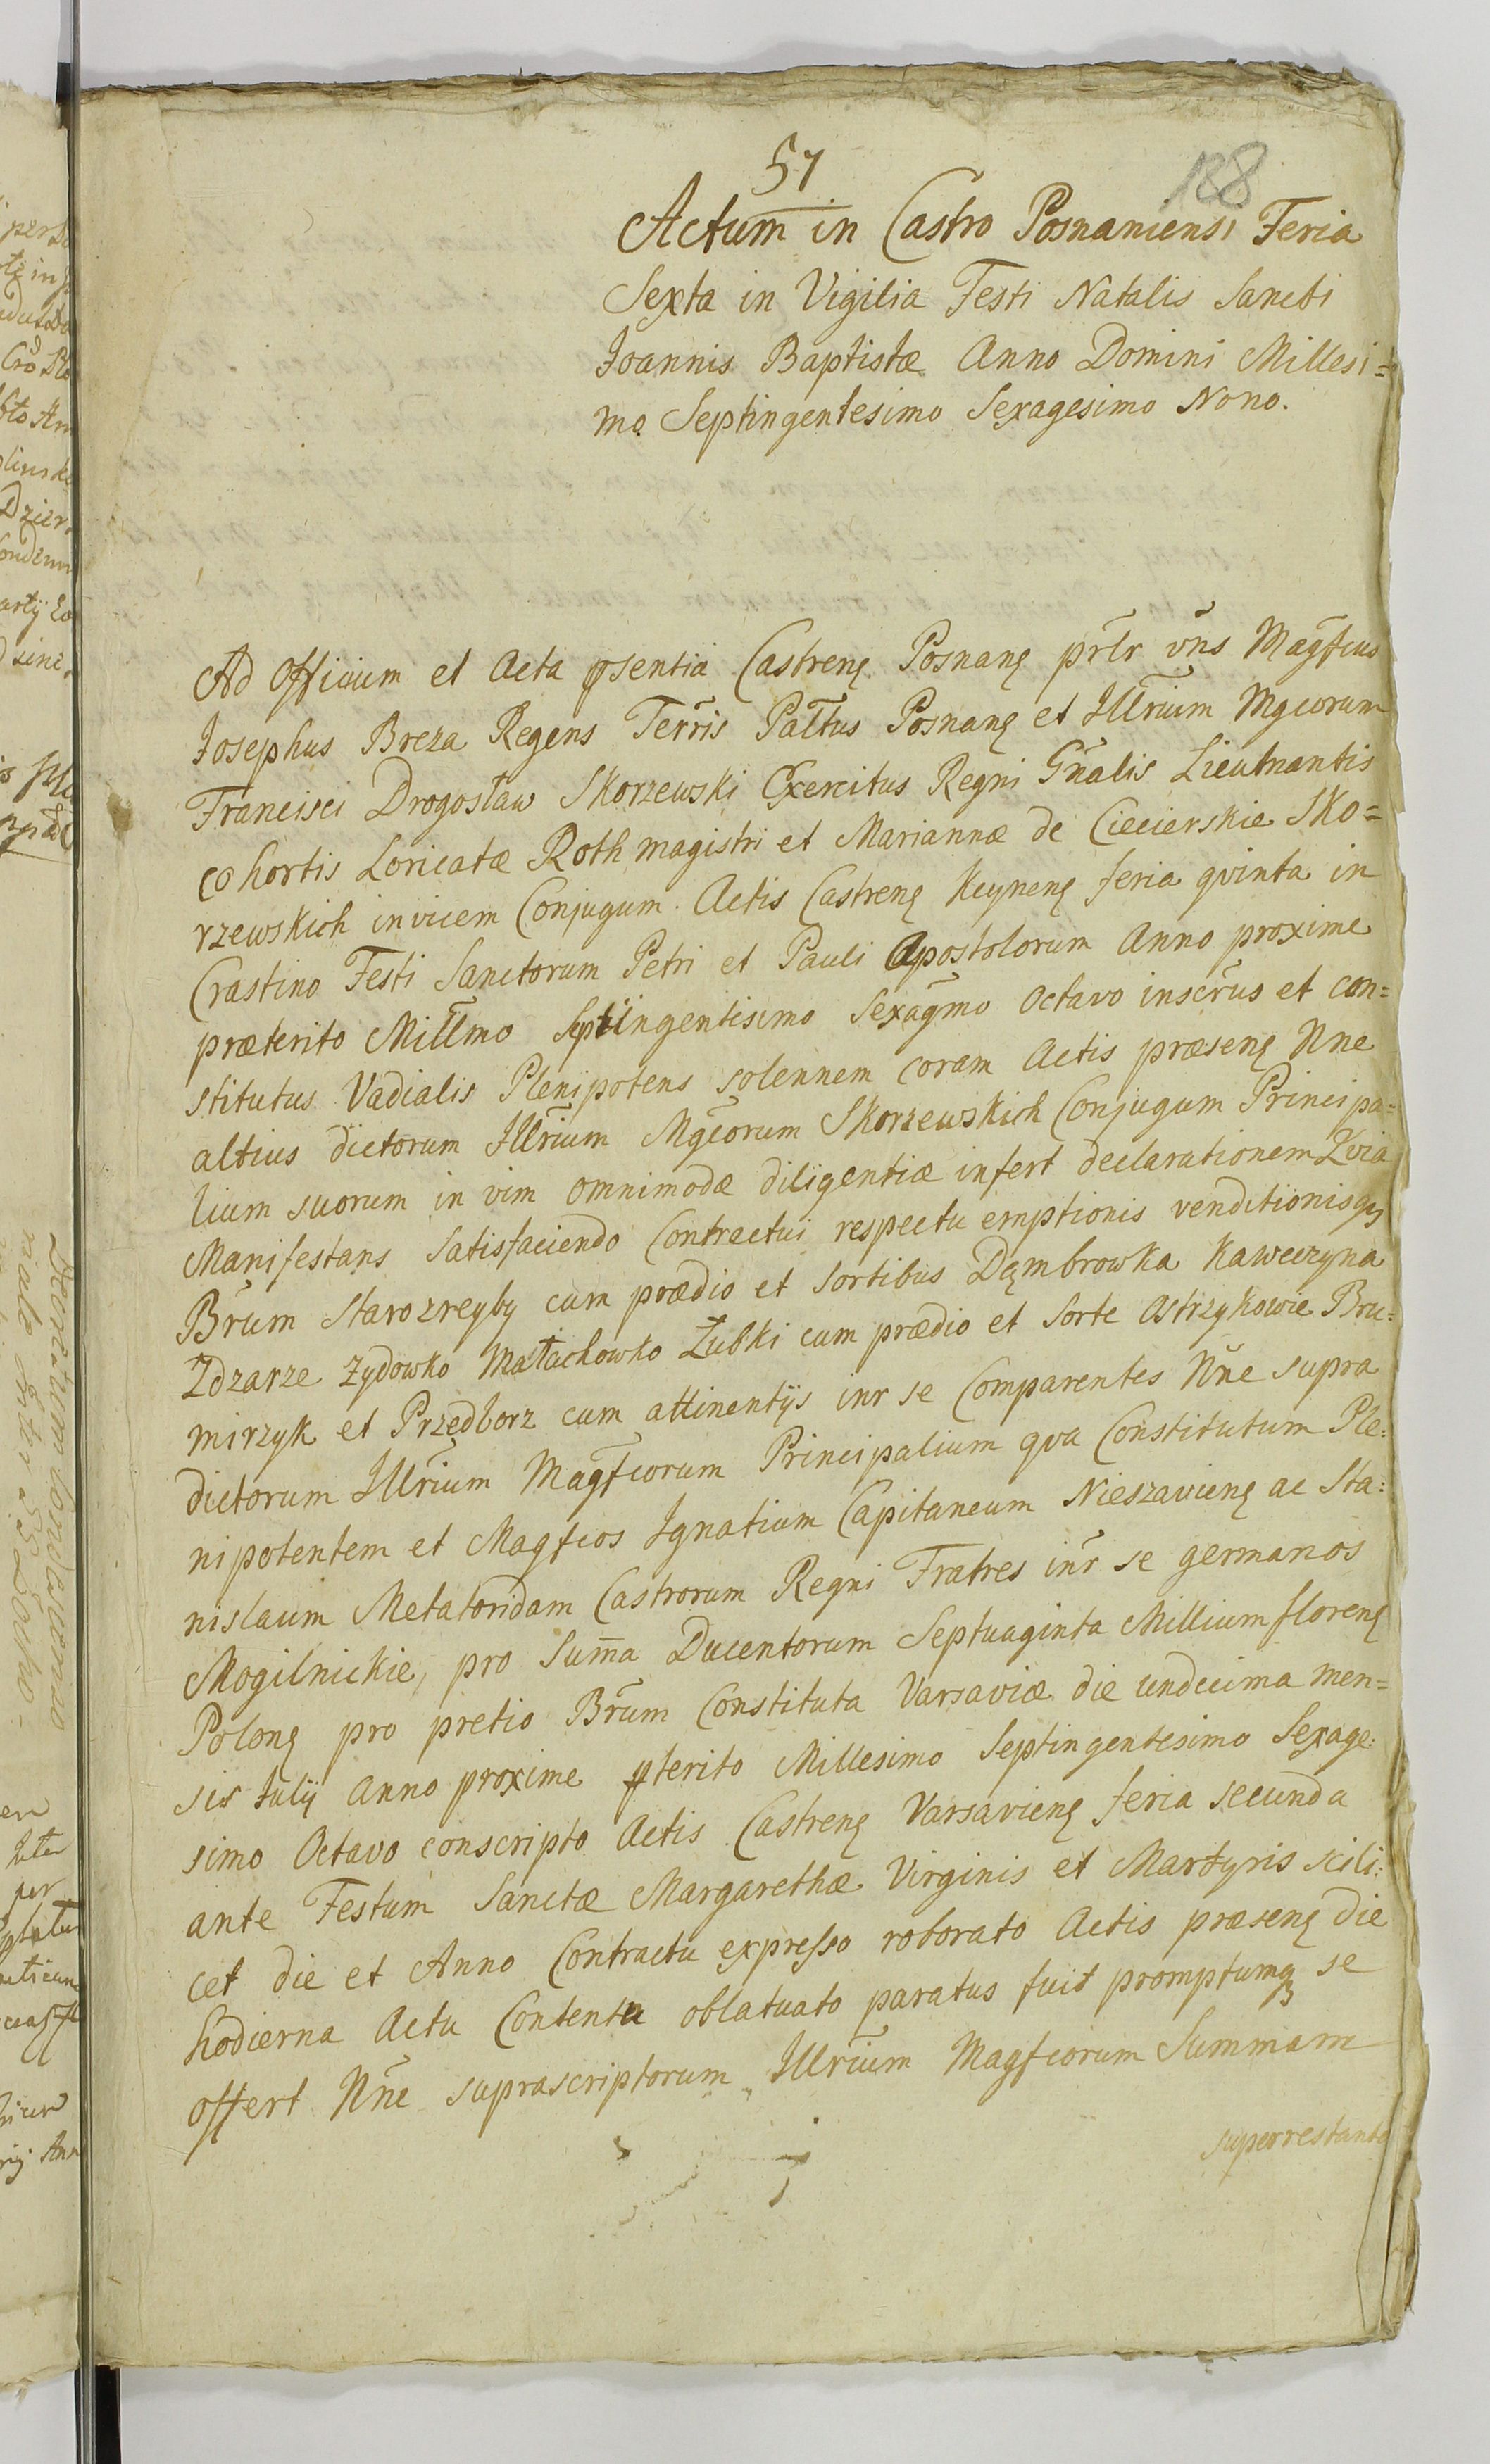 57
188
Actum in Castro Posnaniensi Feria
Sexta in Vigilia Festi Natalis Sancti
Joannis Baptistæ Anno Domini Millesi=
mo Septingentesimo Sexagesimo Nono.
Ad Officium et Acta pſentia Castreną Posnaną prłr vn̄s Magfcus
Josephus Breza Regens Terrīs Pałtus Posnaną et Illrium Mgcorum
Francisci Drogosław Skorzewski Exercitus Regni Gn̄alis Lieutnantis
Cohortis Loricatæ Rothmagistri et Mariannæ de Ciecierskie Sko=
rzewskich invicem Conjugum. Actis Castreną Keyneną feria qvinta in
Crastino Festi Sanctorum Petri et Pauli Apostolorum Anno proxime
præterito Millmo Septingentisimo Sexagmo Octavo inscrus et con=
stitutus Vadialis Plenipotens solennem coram Actis præseną Nne
altius dictorum Illrium Mgcorum Skorzewskich Conjugum Principa=
lium suorum in vim omnimodæ diligentiæ infert declarationem Qvia
Manifestans Satisfaciendo Contractui respectu emptionis venditionisqȝ
Brum Starozreyby cum prædio et Sortibus Dąmbrowka Kaweczyna
Zdzarze Zydowko Małachowko Łubki cum prædio et Sorte Ostrzykowie Bru=
mirzyk et Przedborz cum attinentijs inr se Comparentes Nne supra
dictorum Illrium Magfcorum Principalium qva Constitutum Ple=
nipotentem et Magfcos Ignatium Capitaneum Nieszavieną ac Sta=
nislaum Metatoridam Castrorum Regni Fratres inr se germanos
Mogilnickie, pro Sum̄a Ducentorum Septuaginta Millium floreną
Poloną pro pretio Brum Constituta Varsaviæ die undecima men=
sis Julij Anno proxime pterito Millesimo Septingentesimo Sexage=
simo Octavo conscripto Actis Castreną Varsavieną feria secunda
ante Festum Sanctæ Margarethæ Virginis et Martyris scili=
cet die et Anno Contractu expresso roborato Actis præseną die
hodierna Actu Contentu oblatuato paratus fuit promptumqȝ se
offert Nne suprascriptorum Illrium Magfcorum Summam
superrestante